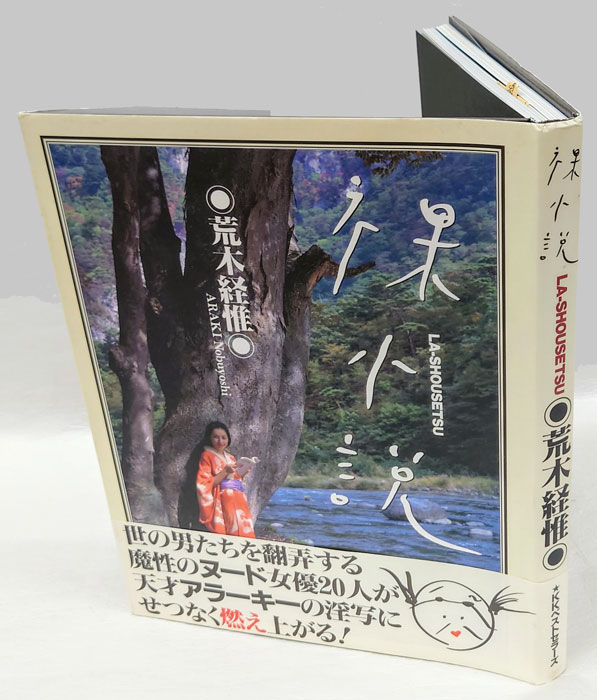 裸小説
LA-SHOUSETSU
●荒木経惟●
ARAKI Nobuyoshi
世の男たちを翻弄する
魔性のヌード女優20人が
天才アラーキーの淫写に
せつなく燃え上がる!
裸小説
LA-SHOUSETSU
●荒木経惟●
★KKベストセラーズ